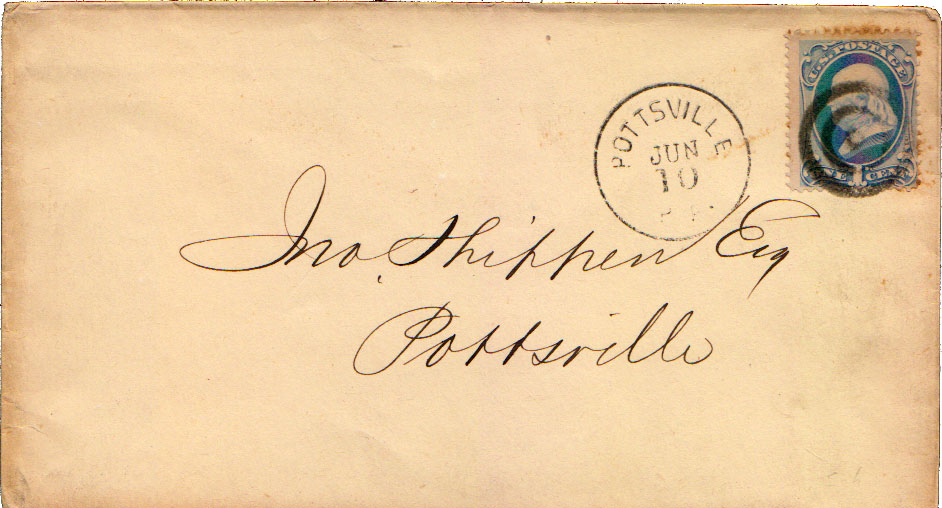 U.S. POSTAGE
POTTSVILLE
JUN
10
ONE CENT
Jno. Shippen Esq
Pottsville